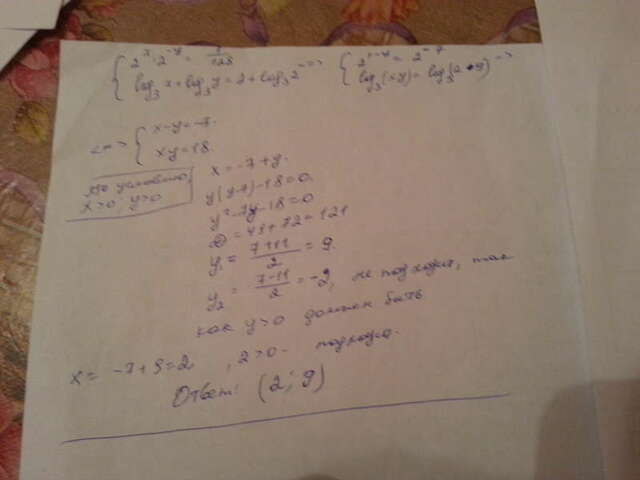 { 2^x · 2^-y = 1/128
log₃ x + log₃ y = 2 + log₃ 2 <=>
{ 2^x-y = 2^-7
log₃ (xy) = log₃ (2 · 9) <=>
<=> { x - y = -7.
xy = 18.
По условию
x>0, y>0
x = -7 + y.
y(y-7) - 18 = 0.
y² - 7y - 18 = 0
D = 49 + 72 = 121
y₁ = (7+11)/2 = 9.
y₂ = (7-11)/2 = -2, не подходит, так
как y>0 должен быть
x = -7 + 9 = 2, , 2>0 -
Ответ: (2; 9)